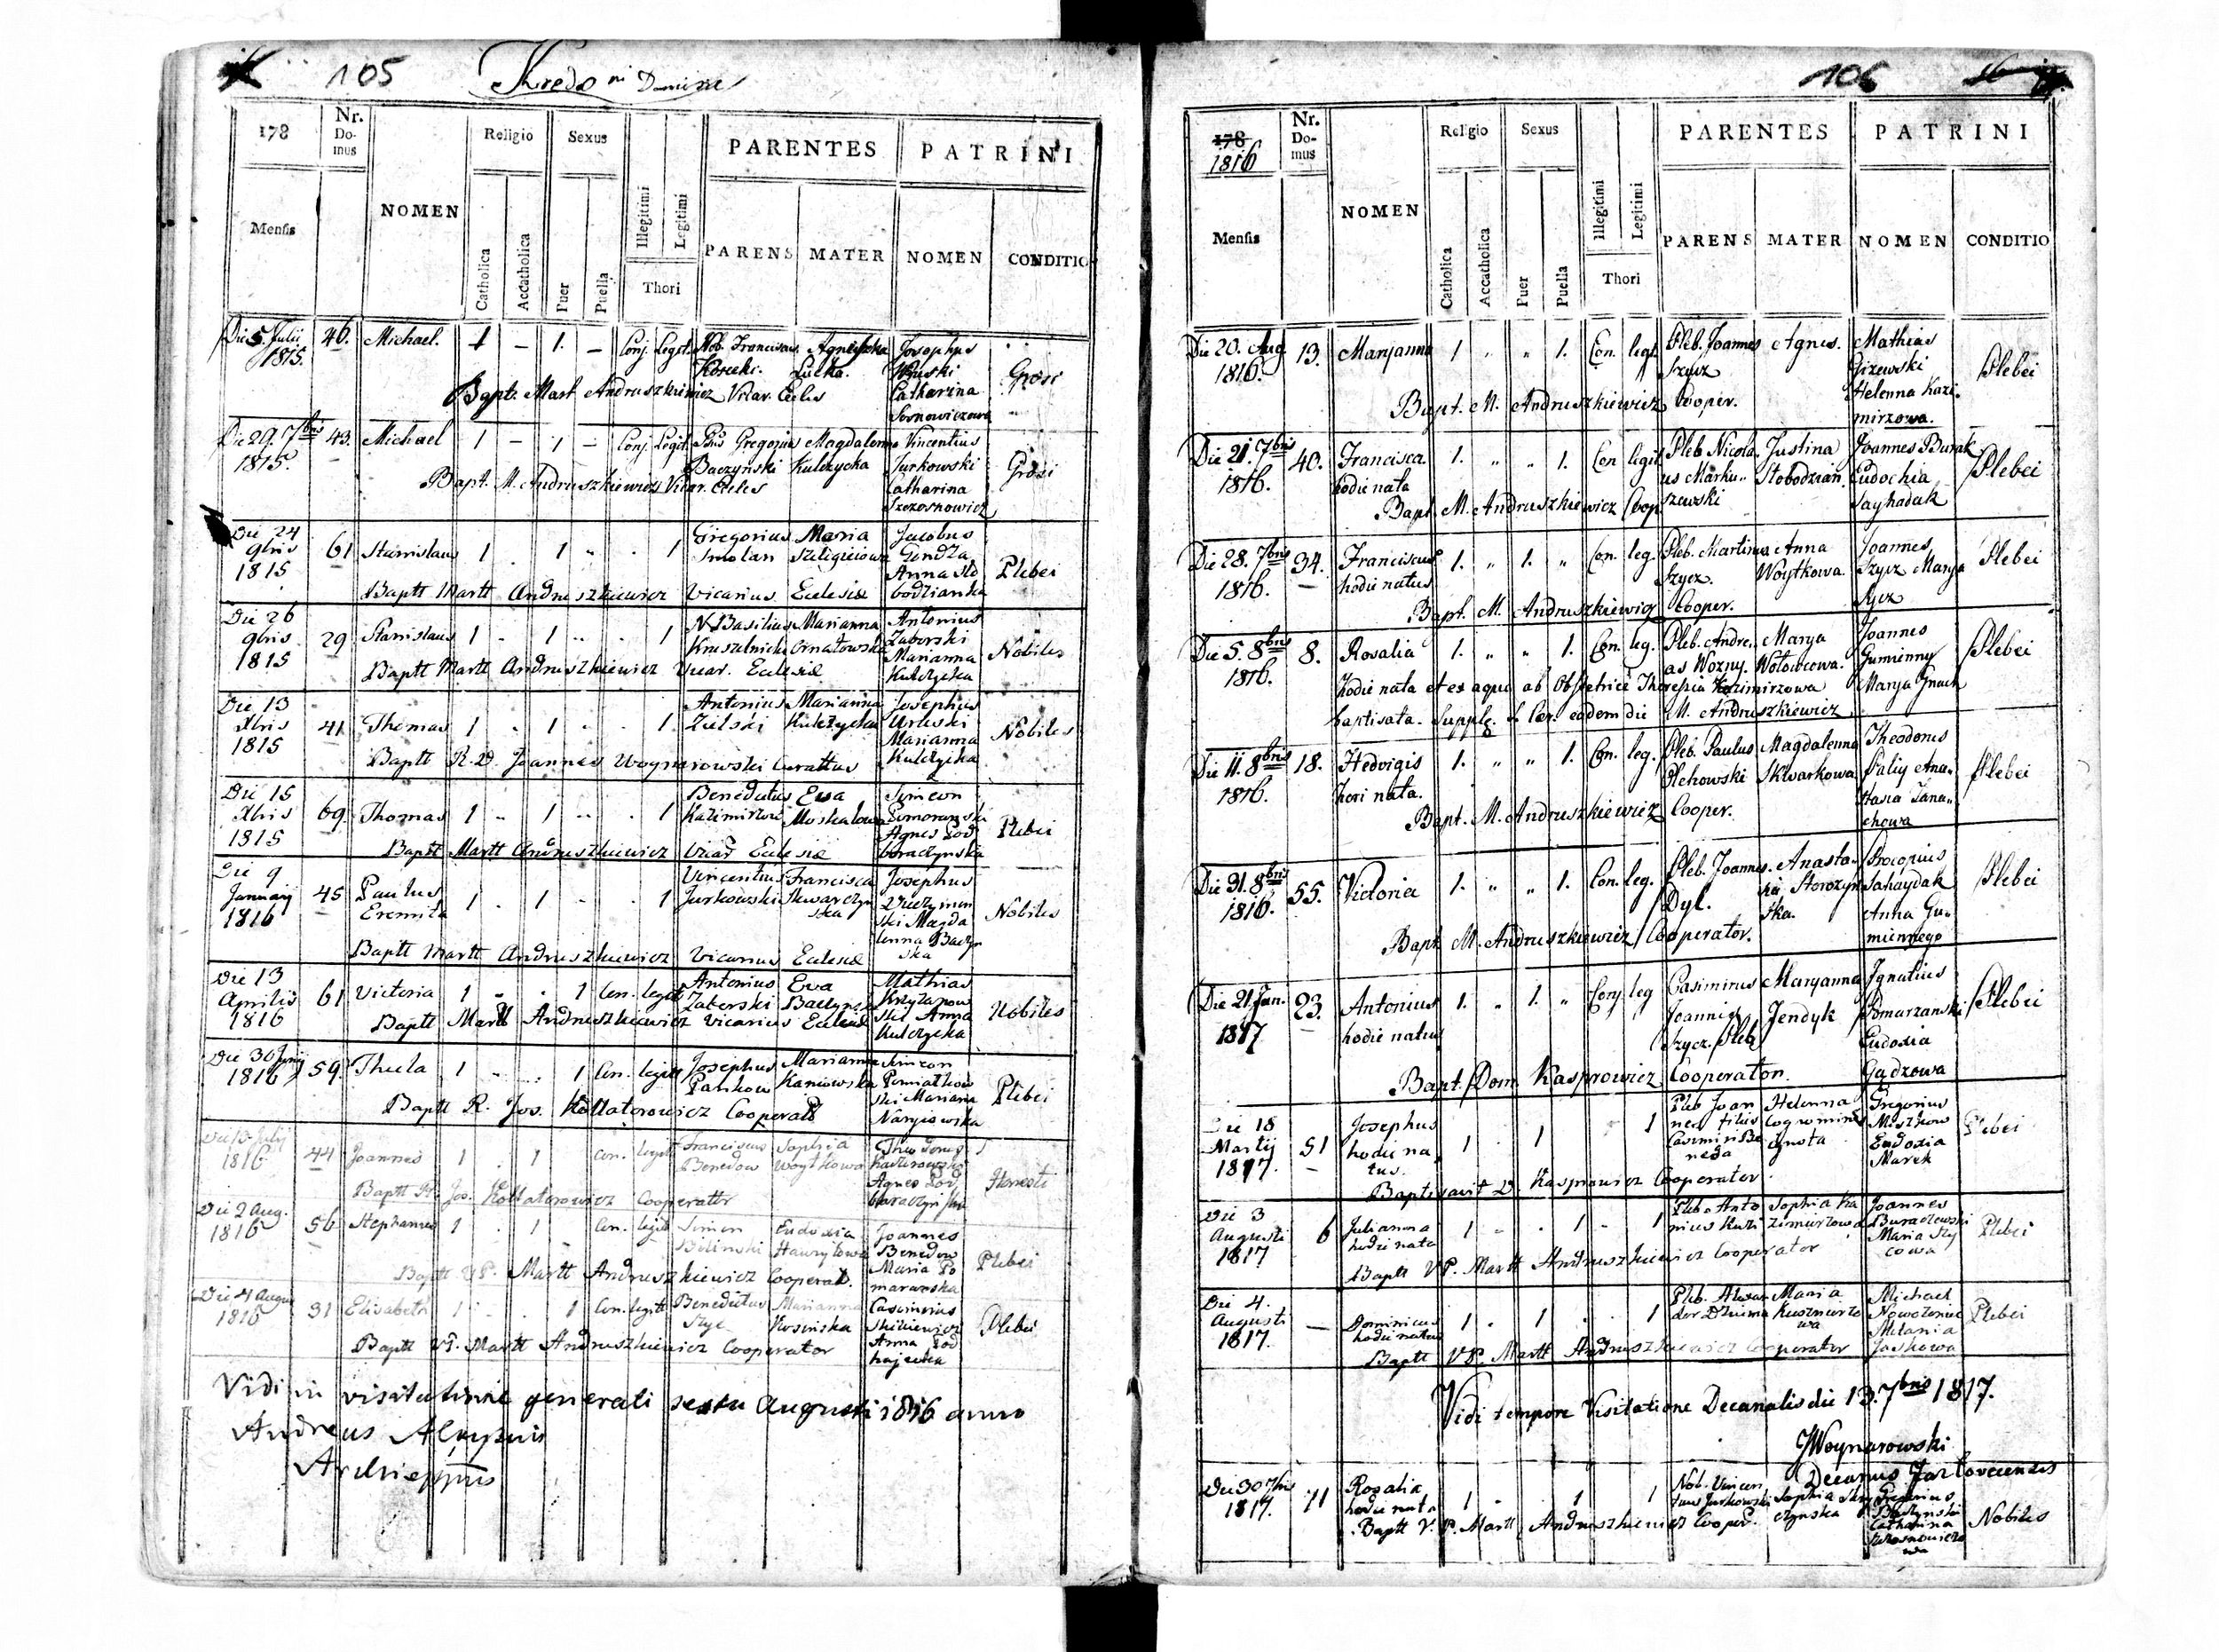 105
178
Nr. Domus
NOMEN
Religio
Sexus
PARENTES
PATRINI
Mensis
Catholica
Accatholica
Puer
Puella
Illegitimi
Legitimi
Thori
PARENS
MATER
NOMEN
CONDITIO
Die 5. Julii 46. Michael. 1 – 1. – Conj. Legit. Nob. Franciscus Agnieszka Josephus
1815.
Catharina
Bapt. Mart Andruszkiewicz Vicar. Eccles
Die 29. 7bris 43. Michael 1 – 1 – Conj. Legit. Gregorius Magdalenna Vincentius
1815. Baczynski Kulczycka Jurkowski
Bapt. M. Andruszkiewicz Vicar. Eccles Catharina
Die 24 Gregorius Maria Jacobus
9bris 61 Stanislaus 1 . 1 .. . 1 Smolan
1815 Anna Plebei
Baptt Martt Andruszkiewicz Vicarius Eclesiæ
Die 26 N Basilius Marianna Antonius
9bris 29 Stanislaus 1 . 1 .. . 1 Ornatowska Zaborski
1815 Marianna Nobiles
Baptt Martt Andruszkiewicz Vicar. Eclesiæ Kulczycka
Die 13 Antonius Marianna Josephus
Xbris 41 Thomas 1 . 1 . . 1 Zielski Kulczycka
1815 Marianna Nobiles
Baptt R. D. Joannes Woynarowski Curattus Kulczycka
Die 15 Benedictus Ewa Simeon
Xbris 69 Thomas 1 .. 1 .. . 1 Moskalowa
1815 Agnes Plebei
Baptt Martt Andruszkiewicz Vicar Eclesiæ
Die 9 Vincentius Francisca Josephus
Januarij 45 Paulus 1 . 1 . . 1 Jurkowski Skwarczyn
1816 Eremita ska ski Magda Nobiles
lenna Baczyn
Baptt Martt Andruszkiewicz Vicarius Eclesiæ ska
Die 13 Antonius Ewa Mathias
Aprilis 61 Victoria 1 . . 1 Con. legitt Zaborski Baczynska Krzyzanow
1816 ski Anna Nobiles
Baptt Martt Andruszkiewicz Vicarius Eclesiæ Kulczycka
Die 30 Junij Josephus Marianna Simeon
1816 59. Thecla 1 .. .. 1 Con. legitt Pankow Kaniowska
ski Mariana Plebei
Baptt R. Jos. Kollatorowicz Cooperatt
Die 13 July Franciscus Sophia Theodorus
1816 44 Joannes 1 . 1 Con. legitt Benedow Woytkowa
Agnes
Baptt R. Jos. Kollatorowicz Cooperattr
Die 2 Aug. Simon Eudoxia Joannes
1816 56 Stephanus 1 . 1 Con. legitt Bilinski Hawrylowa Benedow
Maria Po Plebei
Baptt VP. Martt Andruszkiewicz Cooperat. maranska
1816 31 Elisabeth 1 . . 1 Con. legitt Benedictus Marianna Casimirus
Kosinska Plebei
Anna Pod
Baptt VP. Martt Andruszkiewicz Cooperator hajecka
Vidi in visitatione generali sexta Augusti 1816 anno
Andreas
Archieppus
106
178
1816
Nr. Domus
NOMEN
Religio
Sexus
PARENTES
PATRINI
Mensis
Catholica
Accatholica
Puer
Puella
Illegitimi
Legitimi
Thori
PARENS
MATER
NOMEN
CONDITIO
Die 20. Aug. 13. Maryanna 1 „ „ 1. Con. legt. Pleb. Joannes Agnes. Mathias
1816. Szycz Gizewski Plebei
Helenna Kazi-
Bapt. M. Andruszkiewicz Cooper. mirzowa.
Die 21. 7bris 40. Francisca 1. „ „ 1. Con legit Pleb Nicola„ Justina Joannes Burak
1816. hodie nata us Marku„ Slobodzian. Eudochia Plebei
Bapt. M. Andruszkiewicz Coop szewski Sayhadak
Die 28. 7bris 34. Franciscus 1. „ 1. „ Con. leg. Pleb. Martinus Anna Joannes
1816. hodie natus Szycz. Woytkowa. Szycz Marya Plebei
Bapt. M. Andruszkiewicz Cooper.
Die 5. 8bris 8. Rosalia 1. „ „ 1. Con. leg. Pleb. Andre„ Marya Joannes
1816. as Wozny. Wolowcowa. Gumienny Plebei
hodie nata et ex aqua ab Obstetrice Theresia Kazimirzowa Marya Gnach
baptisata. Supple. S. Cær. eadem die M. Andruszkiewicz
Die 11. 8bris 18. Hedvigis 1. „ „ 1. Con. leg. Pleb. Paulus Magdalenna Theodorus
1816. heri nata. Plehowski Skwarkowa Paliy Ana„
stasia Jana„ Plebei
Bapt. M. Andruszkiewicz Cooper. chowa
Die 31. 8bris 55. Victoria 1. „ „ 1. Con. leg. Pleb. Joannes Anasta- Procopius
1816. Dyl. sia Storozyn Sahaydak Plebei
ska. Anna Gu„
Bapt M. Andruszkiewicz Cooperator. miennego
Die 21. Jan. 23. Antonius 1. „ 1. „ Conj leg Casimirus Maryanna Ignatius
1817 hodie natus Joannis Jendyk Pomarzanski Plebei
Szycz. Pleb. Eudoxia
Bapt. Dom. Kasprowicz Cooperator. Gądzowa
Die 18 Josephus Pleb Joan Helenna Gregorius
Martij 51 hodie na 1 . 1 1 nes filius cognominis
1817. tus. Casimiri Be ignota Eudoxia Plebei
neda Marek
Baptisavit D. Kasprowicz Cooperator.
Die 3 Pleb. Anto Sophia Ka Joannes
Augusti 6 Julianna 1 . . 1 . 1 nius zimirzowa
1817 hodie nata Maria Szy Plebei
Baptt VP. Martt Andruszkiewicz Cooperator cowa
Die 4. Pleb. Alexan Maria Michael
Augusti — Dominicus 1 . 1 . . 1 der
1817. hodie natus Melania Plebei
Baptt VP. Martt Andruszkiewicz Cooperator Jaskowa
Vidi tempore Visitatione Decanalis die 13. 7bris 1817.
JWoynarowski
Decanus Jazloveciensis
Die 30 7bris 71 Rosalia 1 . 1 1 Nob. Vincen
1817. hodie nata tius Jurkowski Sophia Skwar Gregorius
Baptt V. P. Martt Andruszkiewicz Cooper. czynska Baczynski Nobiles
Catharina